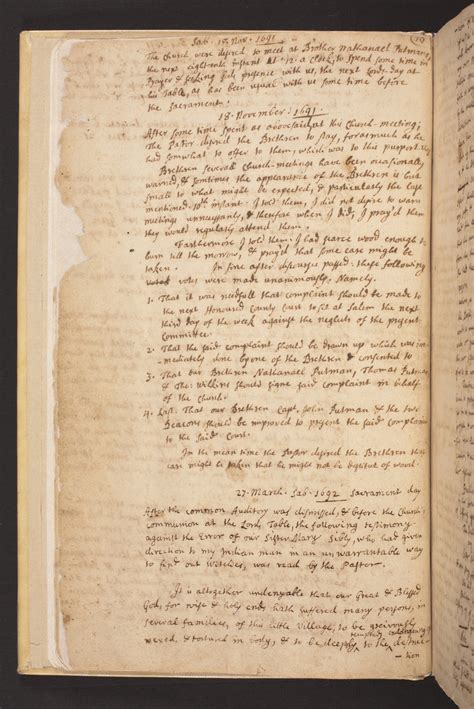 Sab. 15. Nov. 1691. (10
The Church were desired to meet at Brother Nathanael Putmans,
the next eighteenth instant at 12. a clock, to spend some time in
Prayer & seeking Gods presence with us, the next Lords-day at
his Table, as has been usual with us some time before
the Sacrament.
18. November. 1691.
After some time spent as abovesaid at this Church-meeting;
The Pastor desired the Brethren to stay, forasmuch as he
had somewhat to offer to them, which was to this purport. viz.
Brethren severall Church-meetings have been occasionally
warned, & sometimes the appearance of the Brethren is but
small to what might be expected, & particularly the Case
mentioned. 10th. instant. I told them, I did not desire to warn
meetings unnecessarily, & therefore when I did, I pray'd them
they would regularly attend them.
Furthermore I told them. I had scarce wood enough to
burn till the morrow, & pray'd that some care might be
taken. In fine after discourses passed. these following
votes were made unanimously. Namely.
1. That it was needfull that complaint should be made to
the next Honoured County Court to sit at Salem the next
third day of the week against the neglects of the present
Committee.
2. That the said complaint should be drawn up which was im-
mediately done by one of the Brethren & consented to
3. That our Brethren Nathanael Putman, Thomas Putman
& Tho: Wilkins should signe said Complaint in behalf
of the Church.
4. Last. That our Brethren Capt. John Putman & the two
Deacons should be improved to present the said Complaint
to the said Court.
In the mean time the Pastor desired the Brethren that
care might be taken that he might not be destitute of wood.
27. March. Sab. 1692 Sacrament day
After the common Auditory was dismissed, & before the Church's
communion at the Lords Table, the following testimony
against the Error of our Sister Mary Sibly, who had given
direction to my Indian man in an unwarrantable way
to find out Witches, was read by the Pastor.
It is altogether undenyable that our Great & Blessed
God, for wise & holy ends hath suffered many persons, in
severall families, of this little Village, to be grievously
vexed & tortured in body, & to be deeply tempted to the